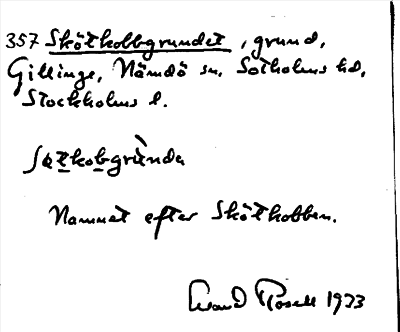 357 Skötkobbgrundet, grund,
Gillinge, Nämdö sn, Sotholms hd,
Stockholms l.
Namnet efter Skötkobben.
Roséll 1973